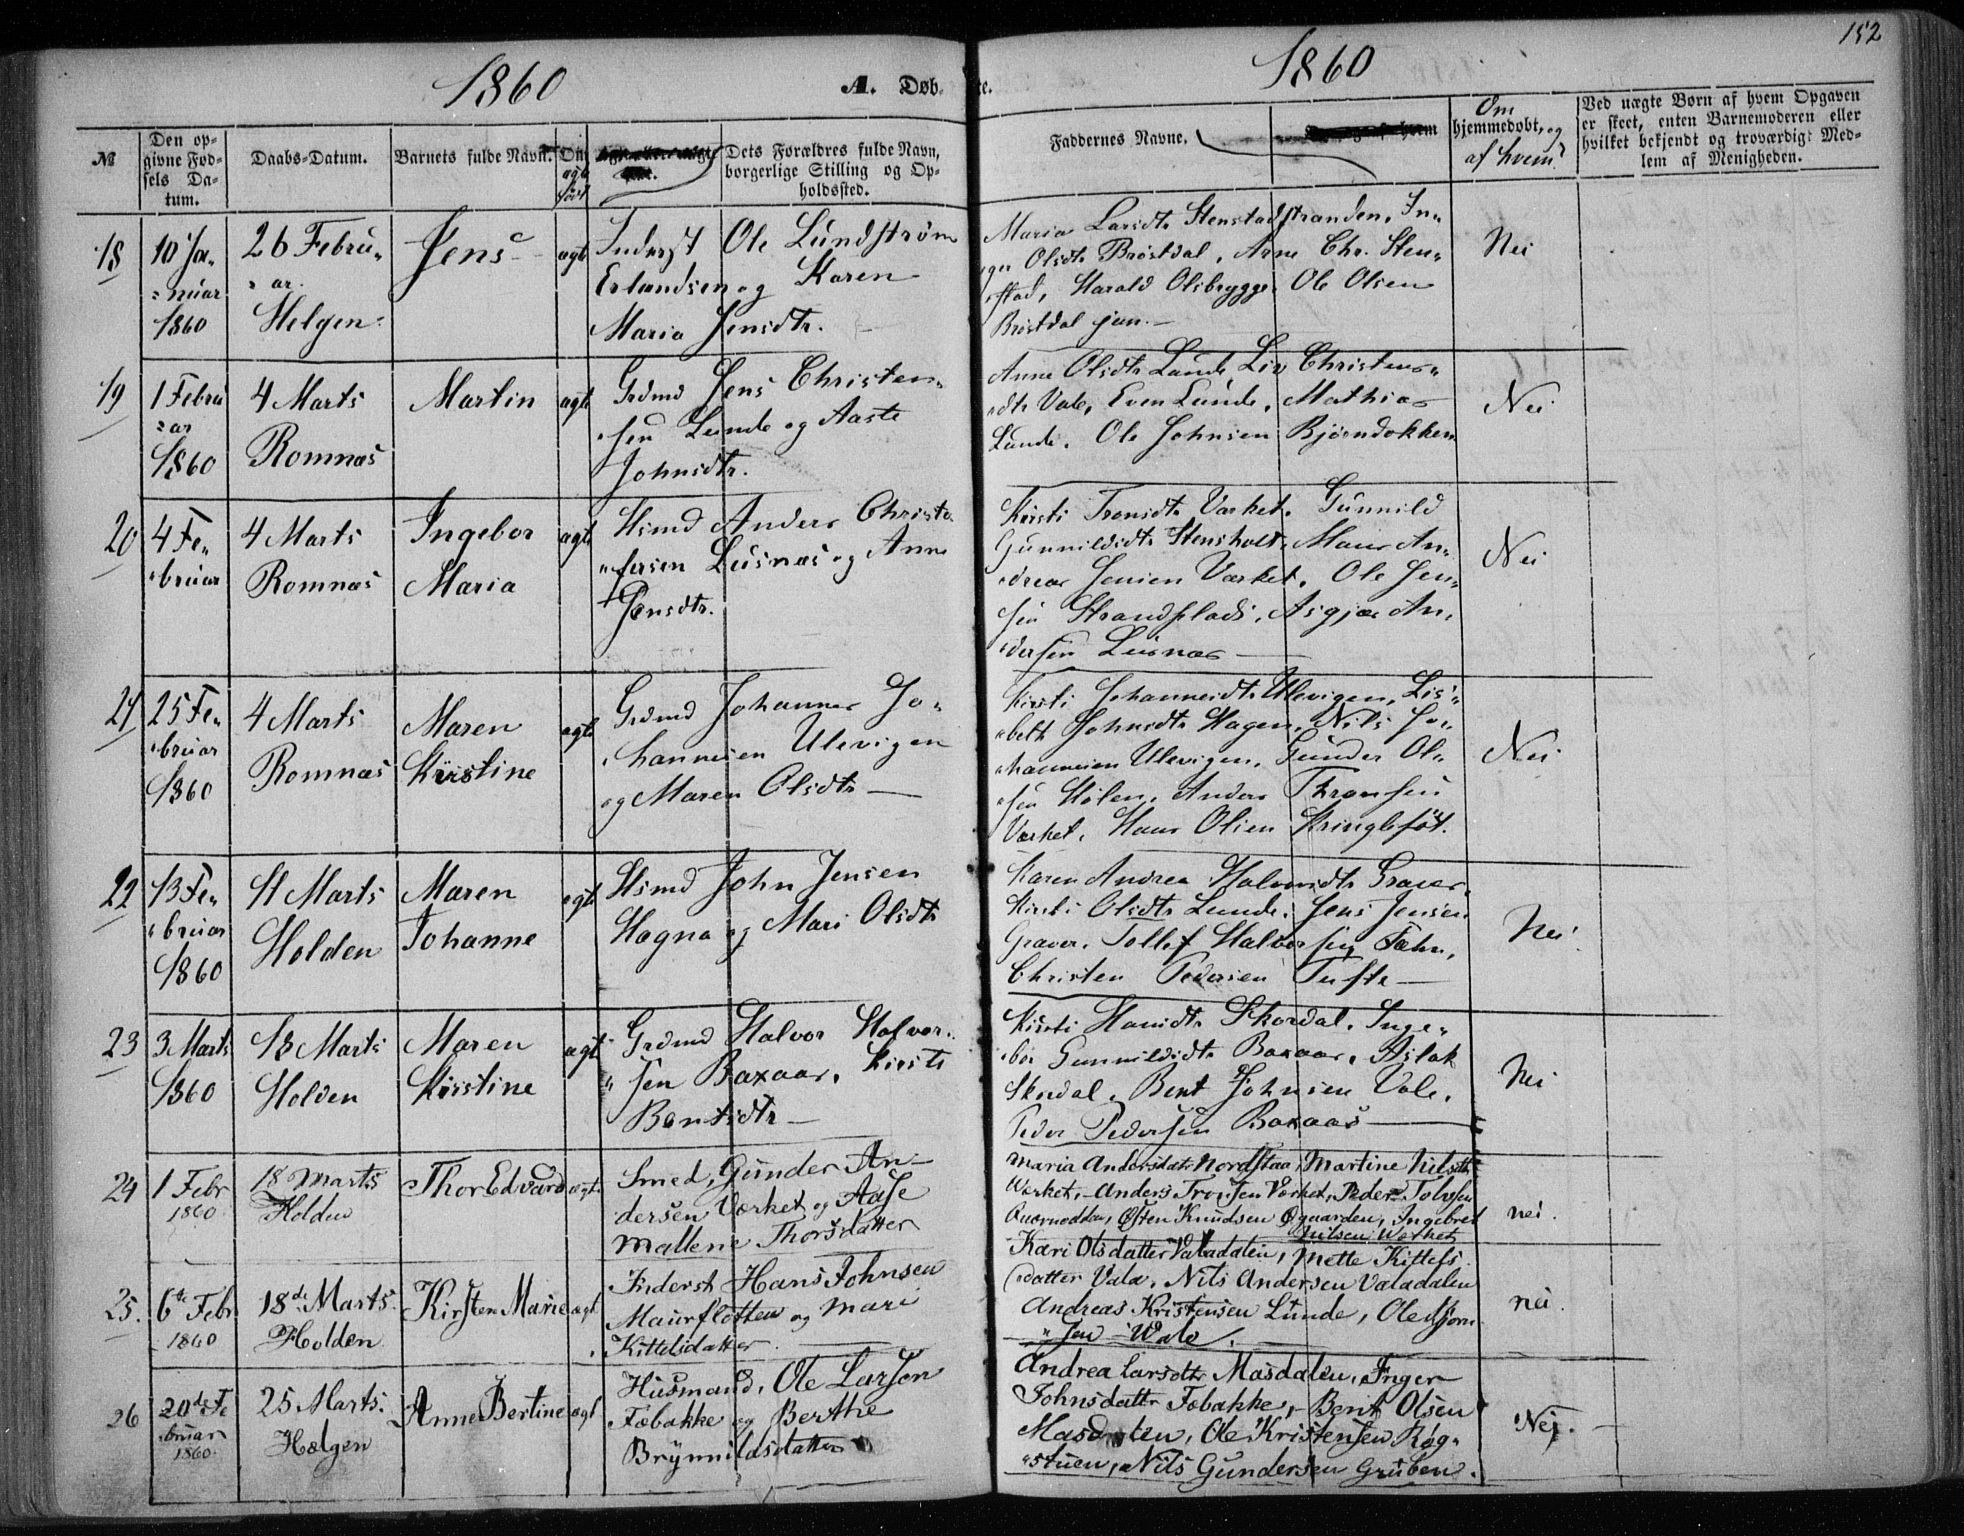 152
1860
1860
A. Døb- te.
№
Den op-
givne Fød-
sels Da-
tum.
Daabs-Datum.
Barnets fulde Navn.
Om
ægte
født
Dets Forældres fulde Navn,
borgerlige Stilling og Op-
holdssted.
Faddernes Navne.
Om
hjemmedøbt, og
af hvem?
Ved uægte Børn af hvem Opgaven
er skeet, enten Barnemoderen eller
hvilket bekjendt og troværdigt Med-
lem af Menigheden.
18
10 Ja-
nuar
1860
26 Febru-
ar.
Helgen
Jens
ægt
Inderst Ole Lundstrøm
Erlandsen og Karen
Maria Jensdtr.
Maria Larsdtr Stenstadstranden, In-
ger Olsdtr Brøstdal, Arne Chr. Sten-
stad, Harald Olsbrygge Ole Olsen
Brøstdal jun.
Nei
19
1 Febru
ar
1860
4 Marts
Romnæs
Martin
ægt
Grdmd Jens Christen-
sen Lunde og Aaste
Johnsdtr.
Anne Olsdtr Lunde Liv Christens-
dtr Vale, Even Lunde, Mathias
Lunde, Ole Johnsen Bjørndokken
Nei
20
4 Fe-
bruar
4 Marts
Romnæs
Ingebor
Maria
ægt
Hsmd Anders Christo
fersen Lusnæs og Anne
Jensdtr.
Kirsti Tronsdtr Værket, Gunnild
Gunnildsdtr Stensholt, Maur An-
dreas Jensen Værket, Ole Jen-
sen Strandplads, Asgjær An-
dersen Lusnæs
Nei
21
25 Fe-
bruar
1860
4 Marts
Romnæs
Maren
Kirstine
ægt
Grdmd Johannes Jo-
hannesen Ulevigen
og Maren Olsdtr
Kirsti Johannesdtr Ulevigen, Lis-
beth Johnsdtr Hagen, Nils Jo-
hannesen Ulevigen, Gunder Ol-
sen Hølen, Anders Thronsen
Værket, Hans Olsen Kringlefôt.
Nei
22
13 Fe-
bruar
1860
11 Marts
Holden
Maren
Johanne
ægt
Hsmd John Jensen
Hagna og Mari Olsdtr
Karen Andrea Halvorsdtr Graver
Kirsti Olsdtr Lunde, Jens Jensen
Graver, Tollef Halvorsen Fæhn,
Christen Pedersen Tufte
Nei
23
3 Marts
1860
18 Marts
Holden
Maren
Kirstine
ægt
Grdmd Halvor Halvor-
sen Baxaas, Kirsti
Bentsdtr
Kirsti Hansdtr Skordal, Inge-
bor Gunnildsdtr Baxaas, Aslak
Skordal, Bent Johnsen Vale,
Peder Pedersen Baxaas
Nei
24
1 Febr
1860
18 Marts
Holden
Thor Edvard
ægt
Smed, Gunder An-
dersen Værket og Aase
Mallene Thorsdatter
Maria Andersdatr Nordstaa, Martine Nilsdtr
Værket, Anders Tronsen Værket, Peder Tolvsen
Qværnodden, Østen Knudsen Øgaarden, Ingebret
Nilsen Værket
nei.
25.
6te Febr
1860
18de Marts.
Holden
Kirsten Marie
ægt
Inderst Hans Johnsen
Maurflotten og Mari
Kittelsdatter
Kari Olsdatter Valadalen, Mette Kittels
datter Vala, Nils Andersen Valadalen
Andreas Kristensen Lunde, Ole Bjørn
sen Wale.
nei.
26
20de Fe
bruar
1860
25 Marts.
Hælgen
Anne Bertine
ægt
Husmand, Ole Larsen
Fæbakke og Berthe
Brynnildsdatter
Andrea Larsdtr Masdalen, Inger
Johnsdatter Fæbakke, Bent Olsen
Masdalen, Ole Kristensen Røg-
stuen, Nils Gundersen Gruben.
Nej.